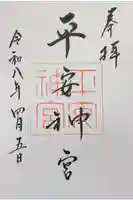 奉拝
平安神宮
令和八年四月五日